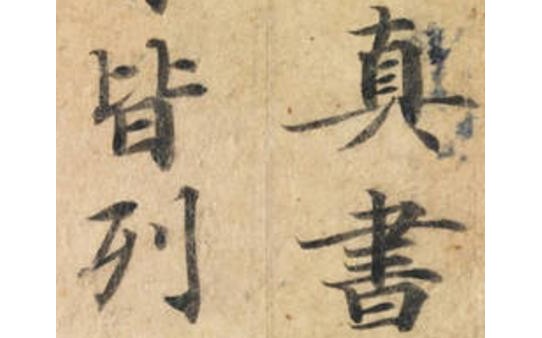 真書
皆列